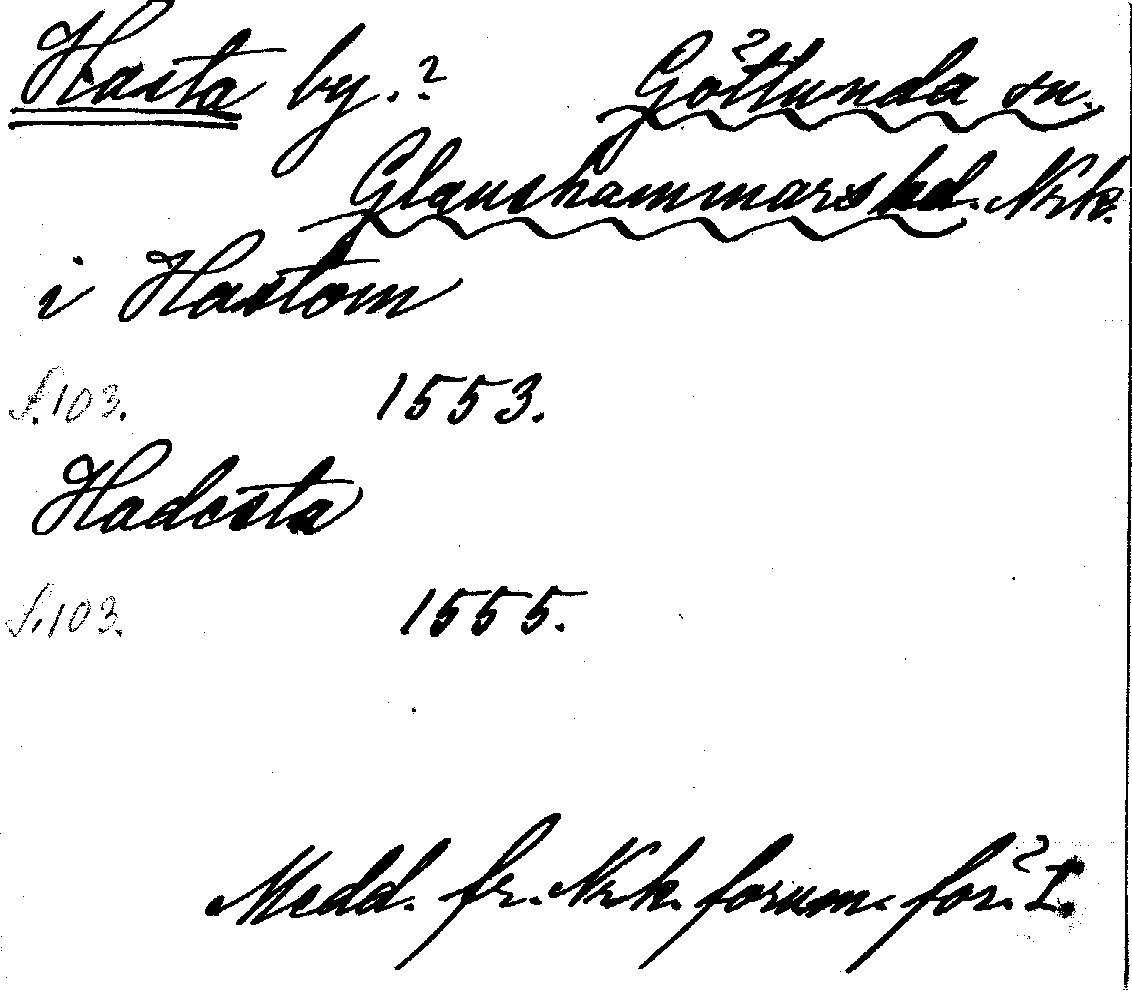 Hasta by.? Götlunda sn.
Glanshammars hd. Nrk.
i Hastom
S.103. 1553.
Hadesta
S.103. 1555.
Medd. fr. Nrk. fornm. för. I.